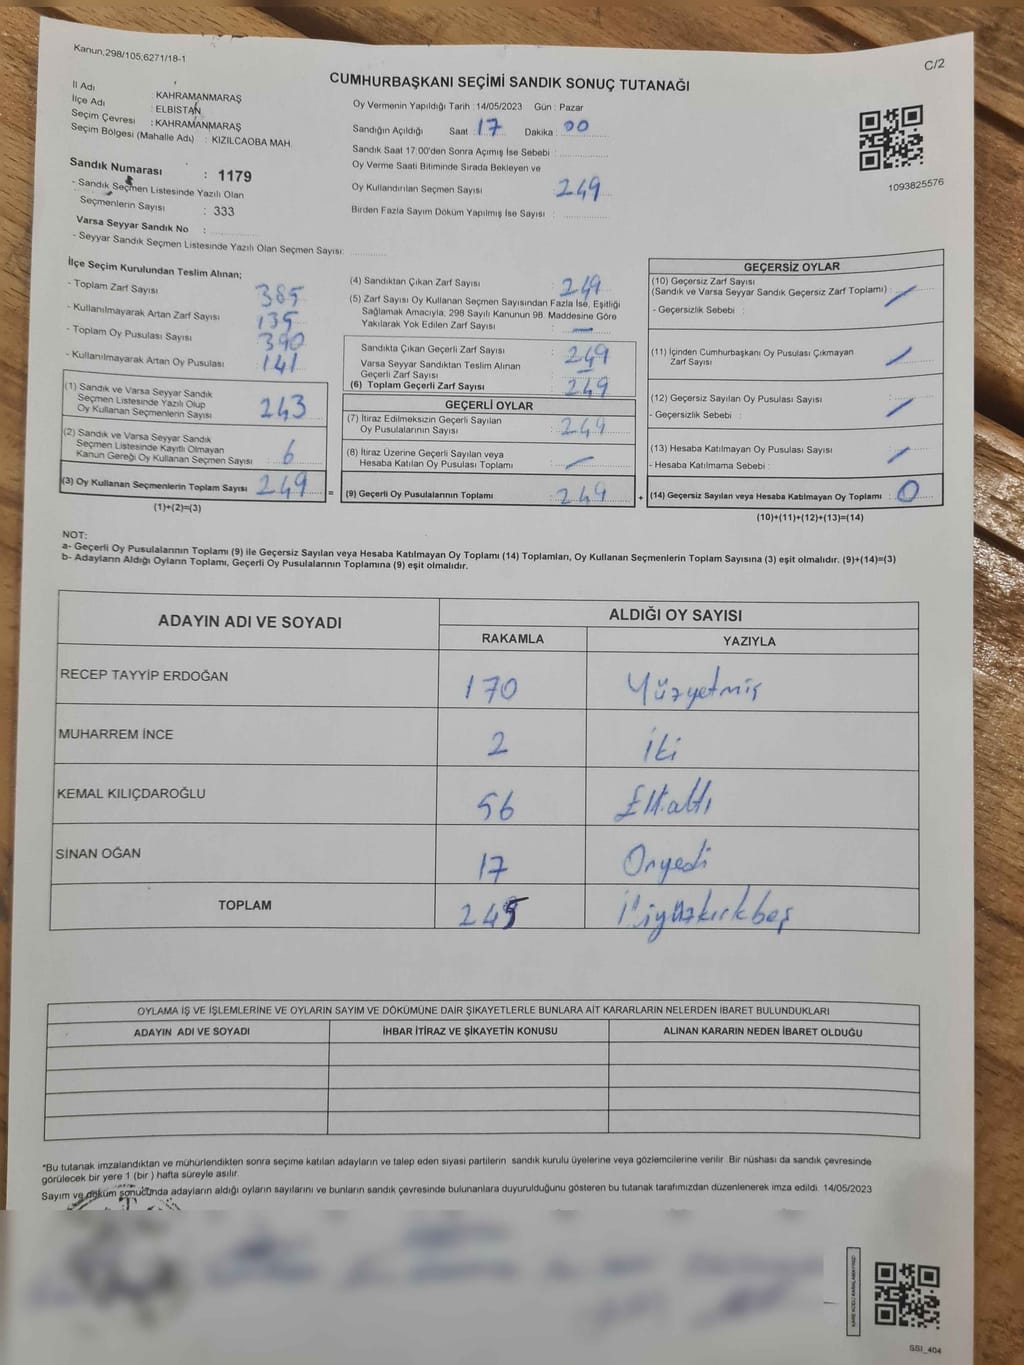 Kanun;298/105,6271/18-1
C/2
CUMHURBAŞKANI SEÇİMİ SANDIK SONUÇ TUTANAĞI
İl Adı : KAHRAMANMARAŞ
İlçe Adı : ELBİSTAN
Seçim Çevresi : KAHRAMANMARAŞ
Seçim Bölgesi (Mahalle Adı) : KIZILCAOBA MAH.
Sandık Numarası : 1179
- Sandık Seçmen Listesinde Yazılı Olan
Seçmenlerin Sayısı : 333
Varsa Seyyar Sandık No :
- Seyyar Sandık Seçmen Listesinde Yazılı Olan Seçmen Sayısı:
Oy Vermenin Yapıldığı Tarih : 14/05/2023 Gün : Pazar
Sandığın Açıldığı Saat : 17 Dakika : 00
Sandık Saat 17:00'den Sonra Açımış İse Sebebi :
Oy Verme Saati Bitiminde Sırada Bekleyen ve
Oy Kullandırılan Seçmen Sayısı : 249
Birden Fazla Sayım Döküm Yapılmış İse Sayısı :
1093825576
İlçe Seçim Kurulundan Teslim Alınan;
- Toplam Zarf Sayısı : 385
- Kullanılmayarak Artan Zarf Sayısı : 135
- Toplam Oy Pusulası Sayısı : 390
- Kullanılmayarak Artan Oy Pusulası : 141
(1) Sandık ve Varsa Seyyar Sandık
Seçmen Listesinde Yazılı Olup
Oy Kullanan Seçmenlerin Sayısı : 243
(2) Sandık ve Varsa Seyyar Sandık
Seçmen Listesinde Kayıtlı Olmayan
Kanun Gereği Oy Kullanan Seçmen Sayısı : 6
(3) Oy Kullanan Seçmenlerin Toplam Sayısı : 249
(1)+(2)=(3)
(4) Sandıktan Çıkan Zarf Sayısı : 249
(5) Zarf Sayısı Oy Kullanan Seçmen Sayısından Fazla İse, Eşitliği
Sağlamak Amacıyla; 298 Sayılı Kanunun 98. Maddesine Göre
Yakılarak Yok Edilen Zarf Sayısı : —
Sandıkta Çıkan Geçerli Zarf Sayısı : 249
Varsa Seyyar Sandıktan Teslim Alınan
Geçerli Zarf Sayısı : —
(6) Toplam Geçerli Zarf Sayısı : 249
GEÇERLİ OYLAR
(7) İtiraz Edilmeksizin Geçerli Sayılan
Oy Pusulalarının Sayısı : 249
(8) İtiraz Üzerine Geçerli Sayılan veya
Hesaba Katılan Oy Pusulası Toplamı : —
= (9) Geçerli Oy Pusulalarının Toplamı : 249 +
GEÇERSİZ OYLAR
(10) Geçersiz Zarf Sayısı
(Sandık ve Varsa Seyyar Sandık Geçersiz Zarf Toplamı) : —
- Geçersizlik Sebebi :
(11) İçinden Cumhurbaşkanı Oy Pusulası Çıkmayan
Zarf Sayısı : —
(12) Geçersiz Sayılan Oy Pusulası Sayısı : —
- Geçersizlik Sebebi :
(13) Hesaba Katılmayan Oy Pusulası Sayısı : —
- Hesaba Katılmama Sebebi :
(14) Geçersiz Sayılan veya Hesaba Katılmayan Oy Toplamı : 0
(10)+(11)+(12)+(13)=(14)
NOT:
a- Geçerli Oy Pusulalarının Toplamı (9) ile Geçersiz Sayılan veya Hesaba Katılmayan Oy Toplamı (14) Toplamları, Oy Kullanan Seçmenlerin Toplam Sayısına (3) eşit olmalıdır. (9)+(14)=(3)
b- Adayların Aldığı Oyların Toplamı, Geçerli Oy Pusulalarının Toplamına (9) eşit olmalıdır.
ADAYIN ADI VE SOYADI ALDIĞI OY SAYISI
RAKAMLA YAZIYLA
RECEP TAYYİP ERDOĞAN 170 Yüzyetmiş
MUHARREM İNCE 2 İki
KEMAL KILIÇDAROĞLU 56 Elli altı
SİNAN OĞAN 17 Onyedi
TOPLAM 245 İkiyüzkırkbeş
OYLAMA İŞ VE İŞLEMLERİNE VE OYLARIN SAYIM VE DÖKÜMÜNE DAİR ŞİKAYETLERLE BUNLARA AİT KARARLARIN NELERDEN İBARET BULUNDUKLARI
ADAYIN ADI VE SOYADI İHBAR İTİRAZ VE ŞİKAYETİN KONUSU ALINAN KARARIN NEDEN İBARET OLDUĞU
*Bu tutanak imzalandıktan ve mühürlendikten sonra seçime katılan adayların ve talep eden siyasi partilerin sandık kurulu üyelerine veya gözlemcilerine verilir. Bir nüshası da sandık çevresinde
görülecek bir yere 1 (bir ) hafta süreyle asılır.
Sayım ve döküm sonucunda adayların aldığı oyların sayılarını ve bunların sandık çevresinde bulunanlara duyurulduğunu gösteren bu tutanak tarafımızdan düzenlenerek imza edildi. 14/05/2023
KARE KODU KARALAMAYINIZ!
SSI_404